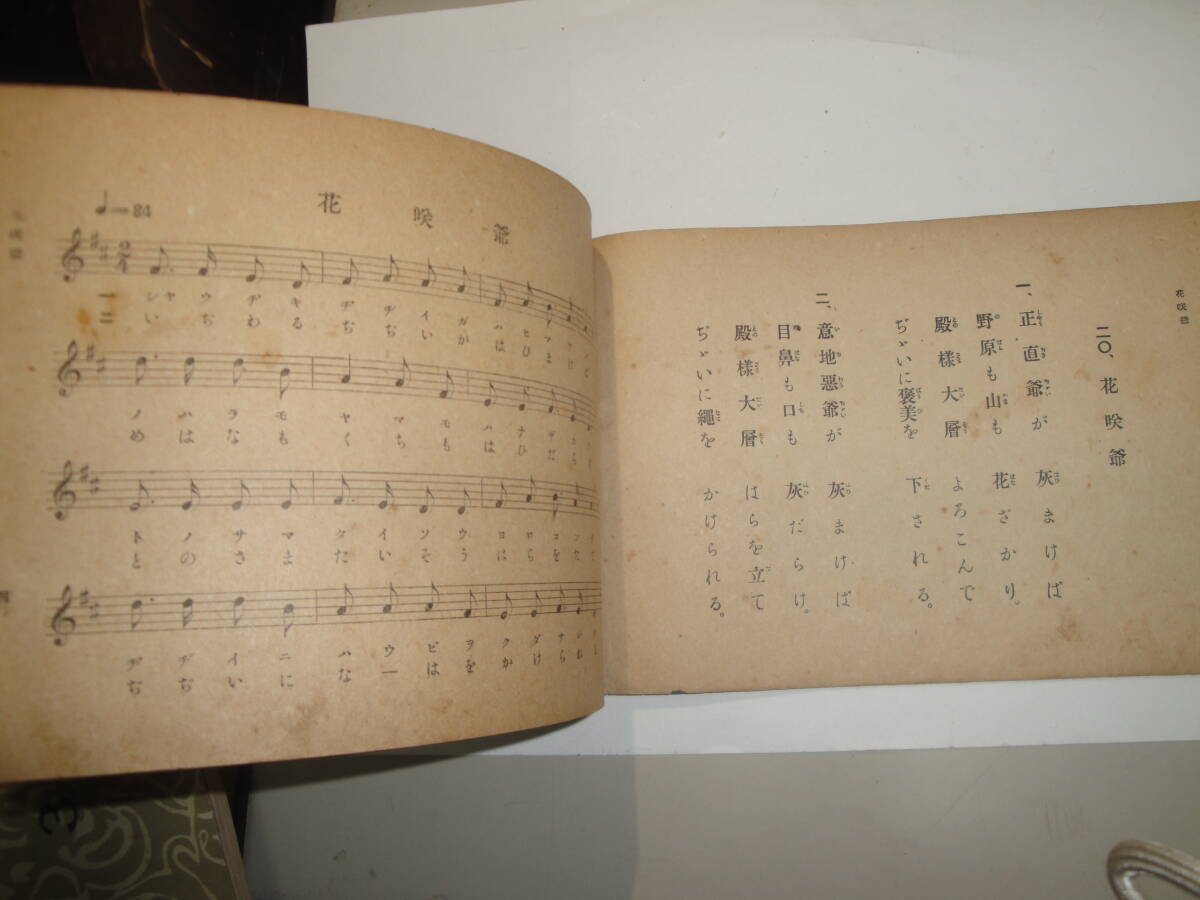 花咲爺
二〇、花咲爺
一、正直爺が 灰まけば
野原も山も 花ざかり。
殿様大層 よろこんで
ぢゞいに褒美を 下される。
二、意地惡爺が 灰まけば
目鼻も口も 灰だらけ。
殿様大層 はらを立て
ぢゞいに繩を かけられる。
花咲爺
♩=84
一 シヤウヂキヂヂイガハヒマ
二 いぢわるぢぢいがはひま
ノハラモヤマモハナザカ
めはなもくちもはひだら
トノサマタイソウヨロコン
とのさまたいそうはらを
ヂヂイニハウビヲクダサレ
ぢぢいになーはをかけられ